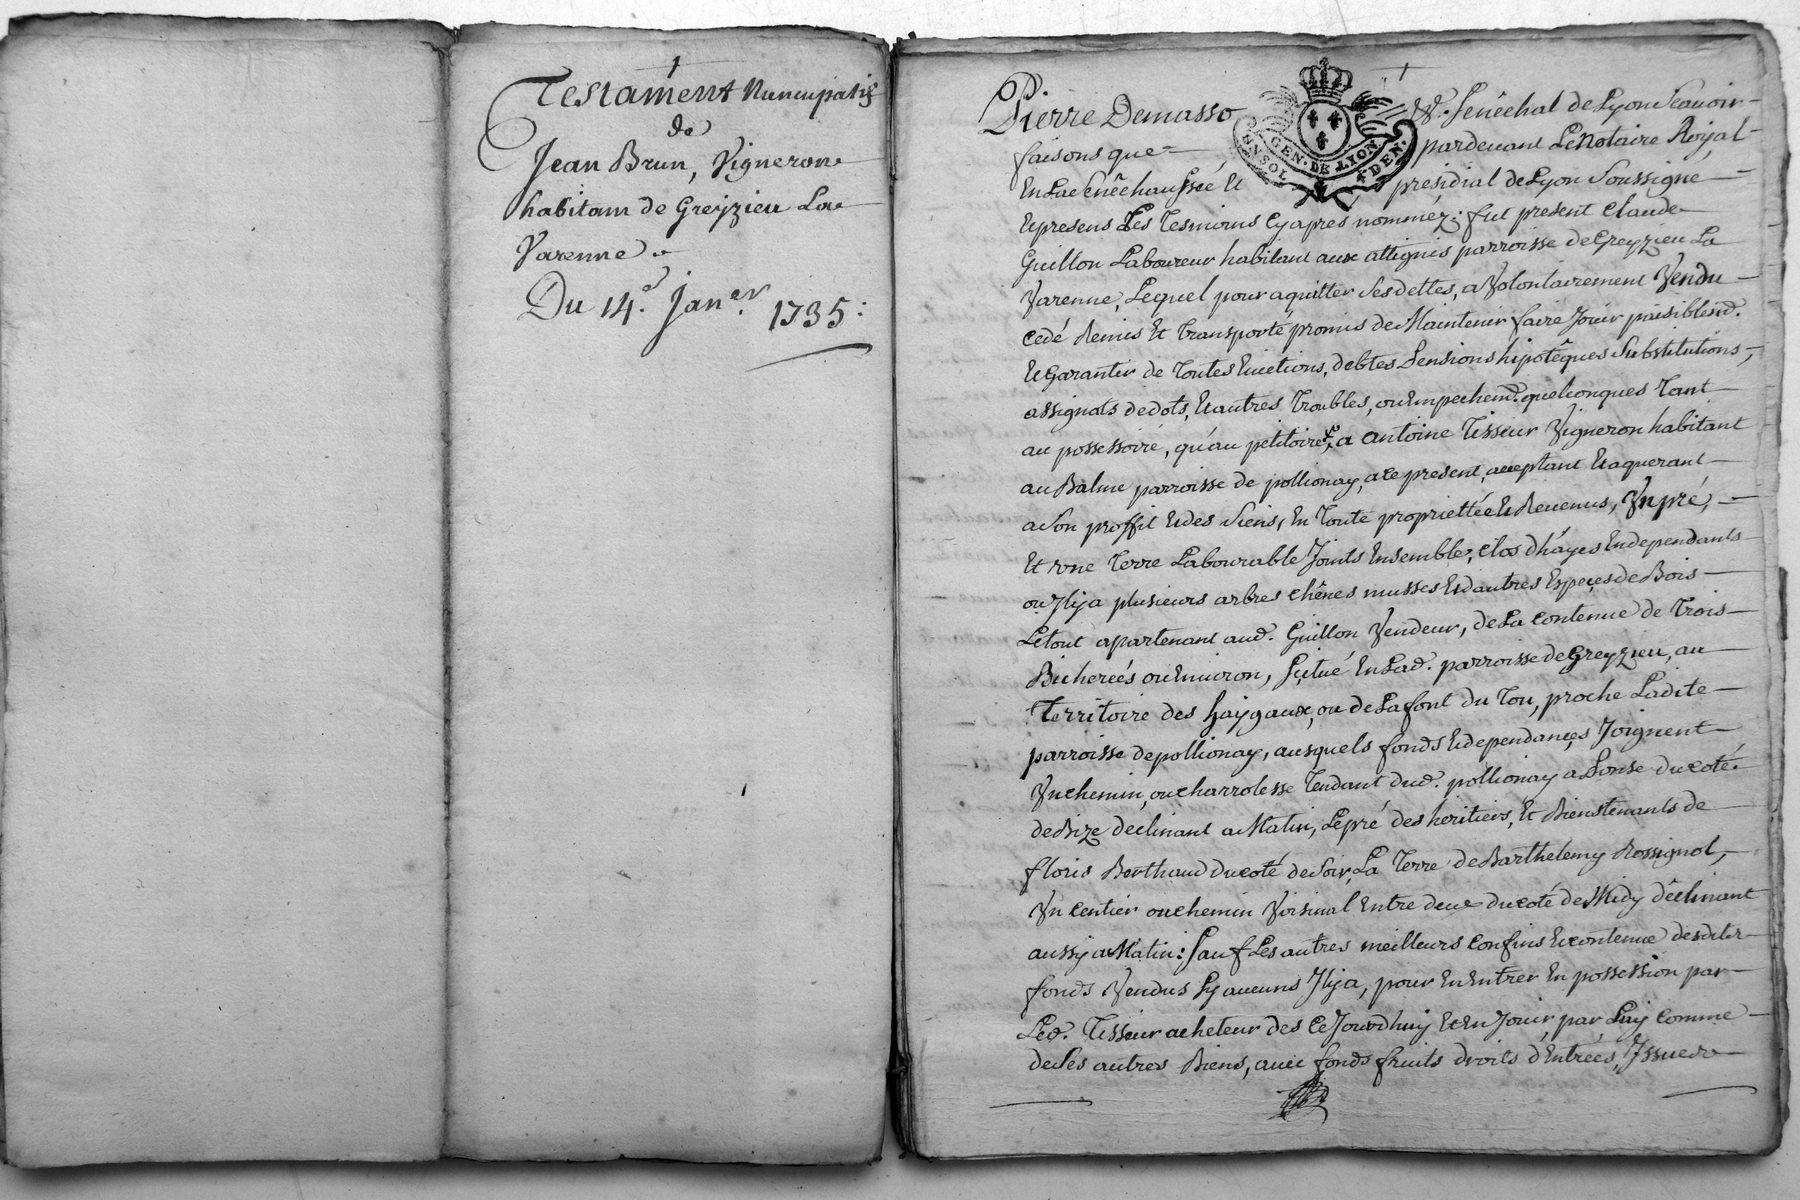 Testament Nuncupatif
de
Jean Brun, Vigneron
habitant de Greyzieu La
Varenne
Du 14.e Jan.er 1735:
Pierre Demasso Senéchal de Lyon Scavoir
faisons que pardevant Le Notaire Royal
GEN. DE LYON
UN SOL 4 DEN.
En La Senêchaussée Et présidial de Lyon Soussigné
Et presens Les Tesmoins Cyapres nommez; fut present Claude
Guillon Laboureur habitant aux attignis parroisse de Greyzieu La
Varenne, Lequel pour aquitter Ses dettes, a Volontairement Vendu
cedé Remis Et Transporté promis de Maintenir faire Jouir paisiblem.t
Et Garantir de Toutes Evictions, debtes Pensions hipotêques Substitutions,
assignats de dots, Et autres Troubles, ou Empechem.t quelconques Tant
au possessoire, qu'au petitoire, a antoine Tisseur Vigneron habitant
au Balme parroisse de pollionay, a ce present, acceptant Et aquerant
a Son proffit Et des Siens, En Toute propriettée Et Revenus, Un pré,
Et une Terre Labourable Joints Ensemble, clos d'häyes En dependants
ou Il y a plusieurs arbres chênes musses Et d'autres Especes de Bois
Le tout apartenant aud. Guillon Vendeur, de La contenue de Trois
Bicherées ou Environ, Scitué En Lad. parroisse de Greyzieu, au
Territoire des haygaux, ou de La font du Tou, proche Ladite
parroisse de pollionay, ausquels fonds Et dependances Joignent
Un chemin, ou charrolesse Tendant dud. pollionay a Lorse du coté
de Bize declinant a Matin, Le pré des heritiers, Et Bienstenants de
floris Berthaud du coté de Soir, La Terre de Barthelemy Rossignol,
Un Centier ou chemin Voisinal Entre deux du coté de Midy dêclinant
aussy a Matin: Sauf Les autres meilleurs confins Et contenue desdits
fonds Vendus Sy aucuns Il y a, pour En Entrer En possession par
Led. Tisseur acheteur des Ce Jourdhuy Et En Jouir, par Luy comme
de Ses autres Biens, avec fonds fruits droits d'Entrées, Issues